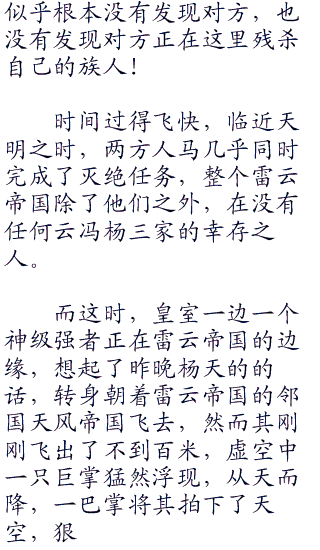 似乎根本没有发现对方，也
没有发现对方正在这里残杀
自己的族人！
时间过得飞快，临近天
明之时，两方人马几乎同时
完成了灭绝任务，整个雷云
帝国除了他们之外，在没有
任何云冯杨三家的幸存之
人。
而这时，皇室一边一个
神级强者正在雷云帝国的边
缘，想起了昨晚杨天的的
话，转身朝着雷云帝国的邻
国天风帝国飞去，然而其刚
刚飞出了不到百米，虚空中
一只巨掌猛然浮现，从天而
降，一巴掌将其拍下了天
空，狠